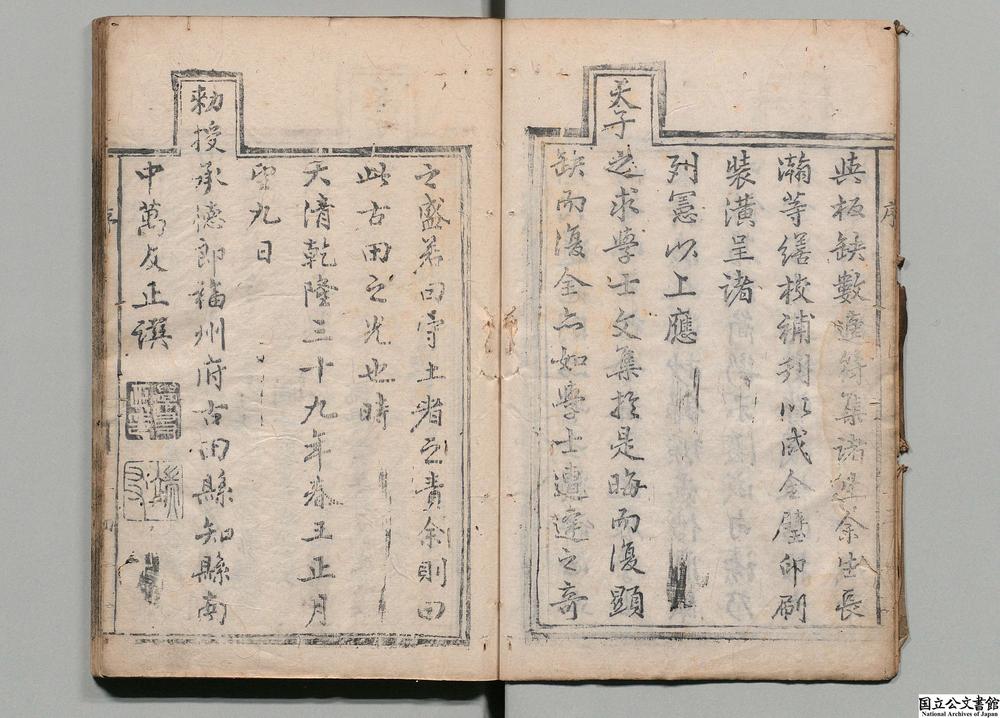 序
與板缺數適符集諸遂余生長
瀚等繕校補刋以成全璧印刷
裝潢呈諸
列憲以上應
天子迄求學士文集於是晦而復顯
缺而復全亦如學士遭逢之奇
之盛若曰守土者之責余則曰
此古田之光也時
大清乾隆三十九年春王正月
望九日
勅授承德郎福州府古田縣知縣南
中萬友正譔
國立公文書館
National Archives of Japan